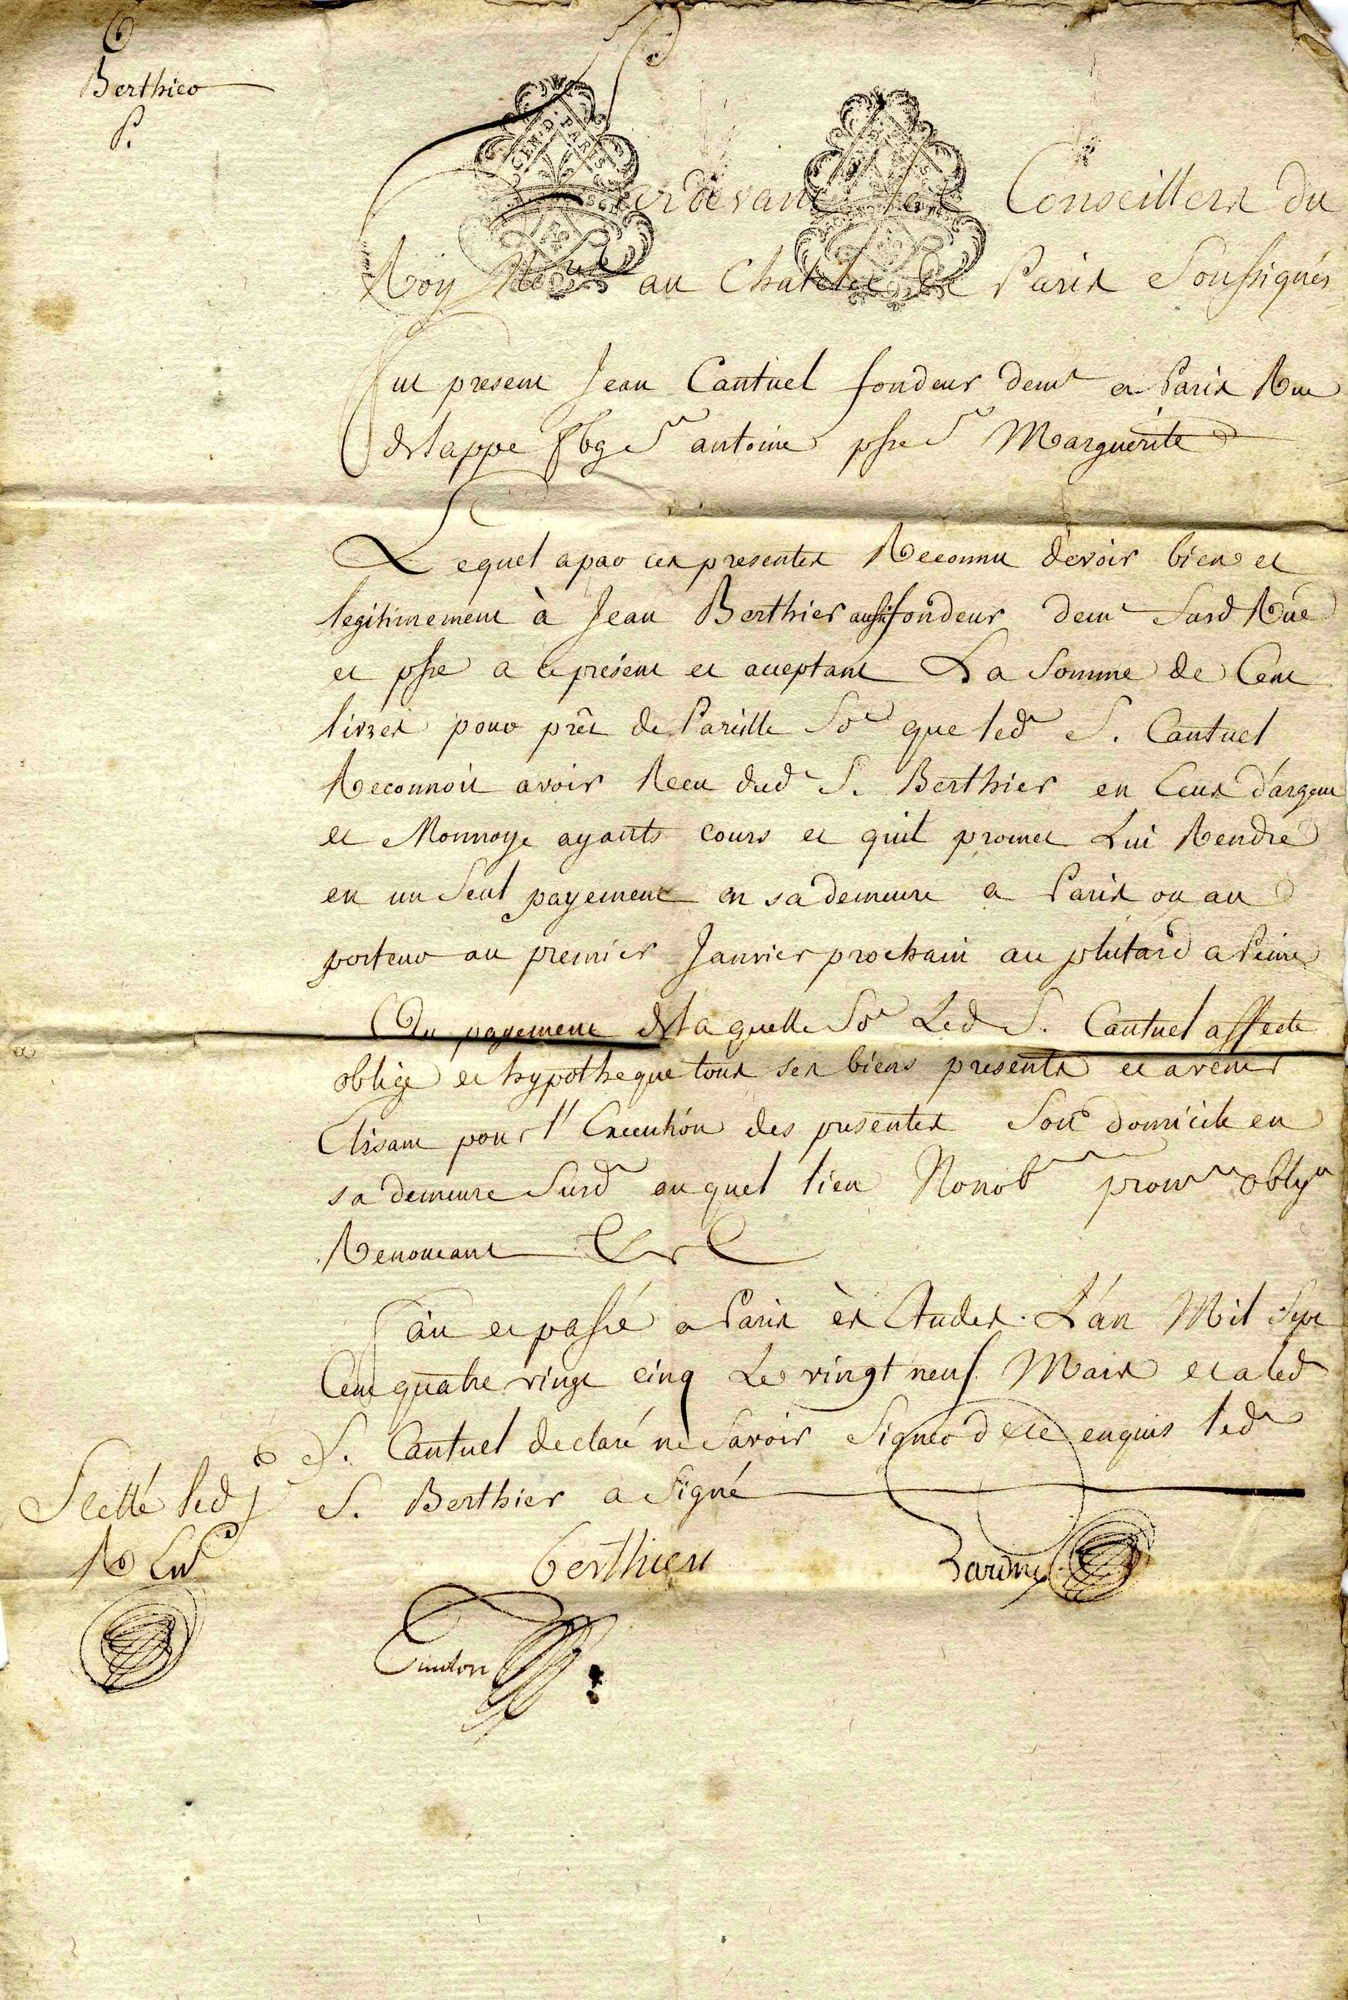 Berthier
P.
GEN. D. PARIS
Pardevant les Conseillers du
Roy Nores au Chatelet de Paris Soussignés
fut present Jean Cantuel fondeur demt a Paris Rue
de lappe fbg St antoine psse Ste Marguerite
Lequel a par ces presentes Reconnu devoir bien et
legitimement à Jean Berthier aussi fondeur demt Susd Rue
et psse a ce présent et acceptant La Somme de Cent
livres pour prêt de Pareille Soe que led S. Cantuel
Reconnoit avoir Recu dud S. Berthier en Ecus d'argent
et Monnoye ayants cours et quil promet Lui Rendre
en un Seul payement en sa demeure a Paris ou au
porteur au premier Janvier prochain au plutard a Peine
Au payement de laquelle Soe Led S. Cantuel affecte
oblige et hypotheque tous ses biens presents et avenir
Elisant pour l'Execution des presentes Son domicile en
sa demeure Susd auquel lieu Nonobt promt oblignt
Renoncant
fait et passé a Paris ès Etudes. L'an Mil Sept
Cent quatre vingt cinq Le vingt neuf Mars et a led
S. Cantuel declaré ne Savoir Signer de ce enquis led
S. Berthier a Signé
Scellé led j
berthier